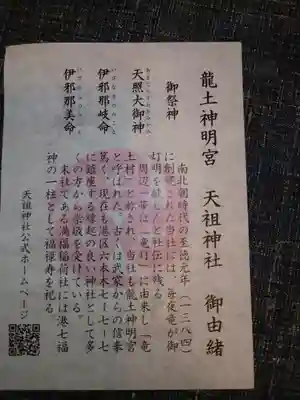 龍土神明宮 天祖神社 御由緒
御祭神
天照大御神
あまてらすおおみかみ
伊邪那岐命
いざなぎのみこと
伊邪那美命
いざなみのみこと
南北朝時代の至徳元年(一三八四)
に創建された当社には、毎夜竜が御
灯明を献じたと社伝に残る。
周辺一帯は「竜灯」に由来し「竜
土村」と称され、当社も龍土神明宮
と呼ばれた。古くは武家からの信奉
篤く、現在も港区六本木七-七-七
に鎮座する縁起の良い神社として多
くの方から崇敬を受けている。
末社である満福稲荷社には港七福
神の一柱として福禄寿を祀る
天祖神社公式ホームページ